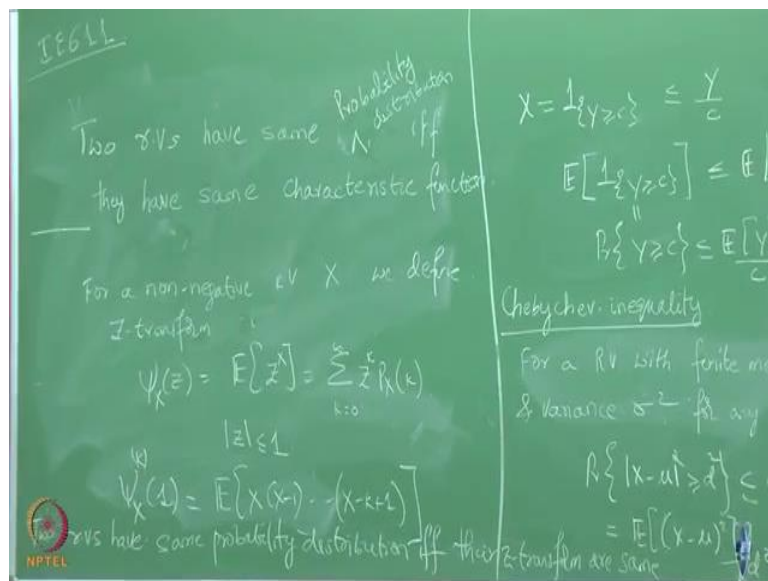 IE611
Two r.vs have same Probability distribution iff
they have same characteristic function.
For a non-negative rv X we define
Z-transform :
ψ_X(z) = E[z^X] = ∑_{k=0}^{∞} z^k P_X(k)
|z| ≤ 1
ψ_X^{(k)}(1) = E[X(X-1) ... (X-k+1)]
Two rvs have same probability distribution iff their z-transform are same
NPTEL
X = 1_{Y≥c} ≤ Y/c
E[1_{Y≥c}] ≤ E[
"
P{Y≥c} ≤ E[Y/c
Chebychev-inequality
For a RV with finite
& variance σ² for any
P{|X-μ|² ≥ d²} ≤
= E[(X-μ)²] d²